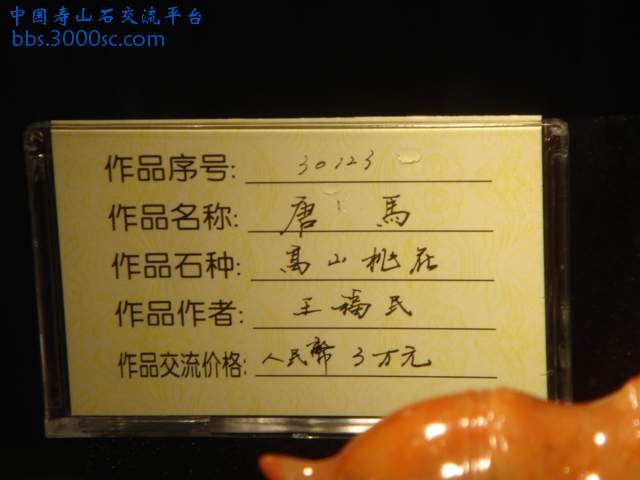 中国寿山石交流平台
bbs.3000sc.com
作品序号: 30123
作品名称: 唐 馬
作品石种: 高山桃花
作品作者: 王福民
作品交流价格: 人民幣 3万元